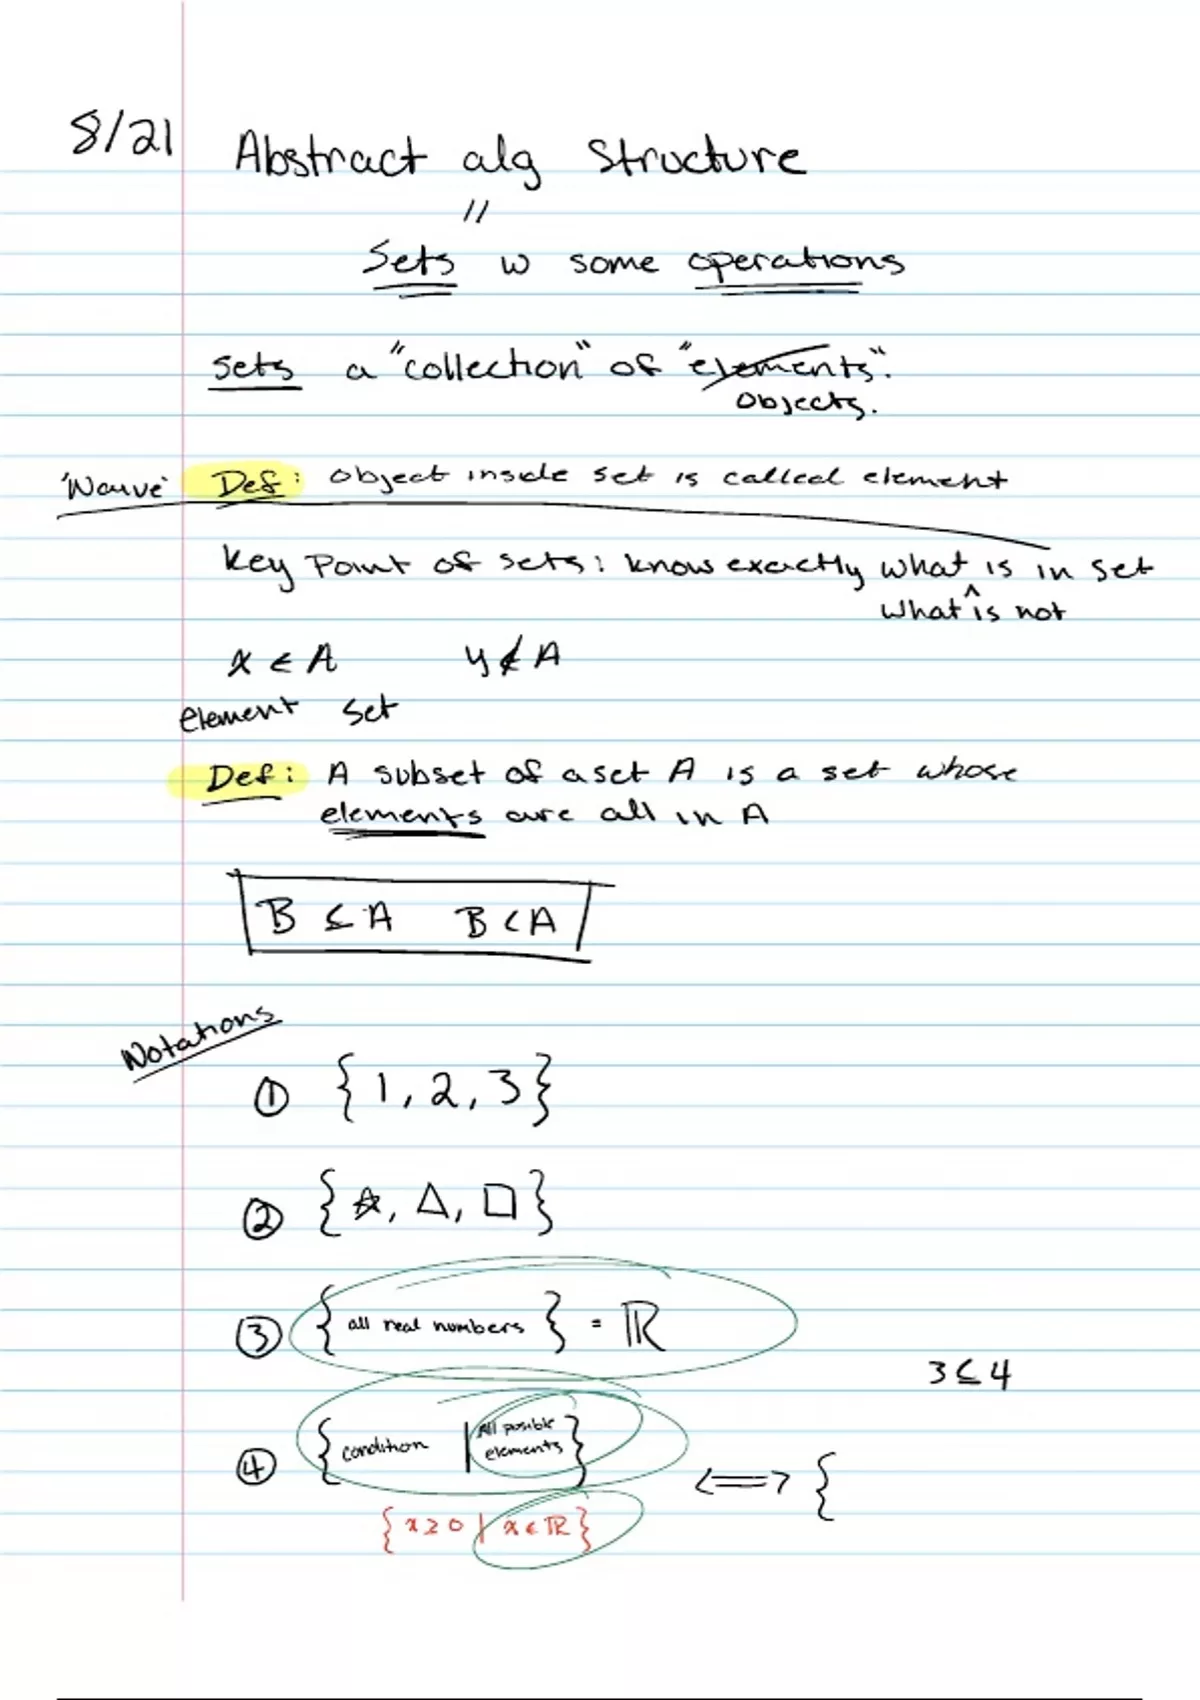 8/21 Abstract alg Structure
"
Sets w some operations
sets a "collection" of "elements".
objects.
'Naive' Def: object inside set is called element
Key Point of sets: know exactly what is in set
^
what is not
x ∈ A y ∉ A
element set
Def: A subset of a set A is a set whose
elements are all in A
B ⊆ A B ⊂ A
Notations
① {1, 2, 3}
② {☆, △, □}
③ {all real numbers} = ℝ
3 ≤ 4
④ {condition | All posible
elements} <=> {
{x ≥ 0 | x ∈ ℝ}